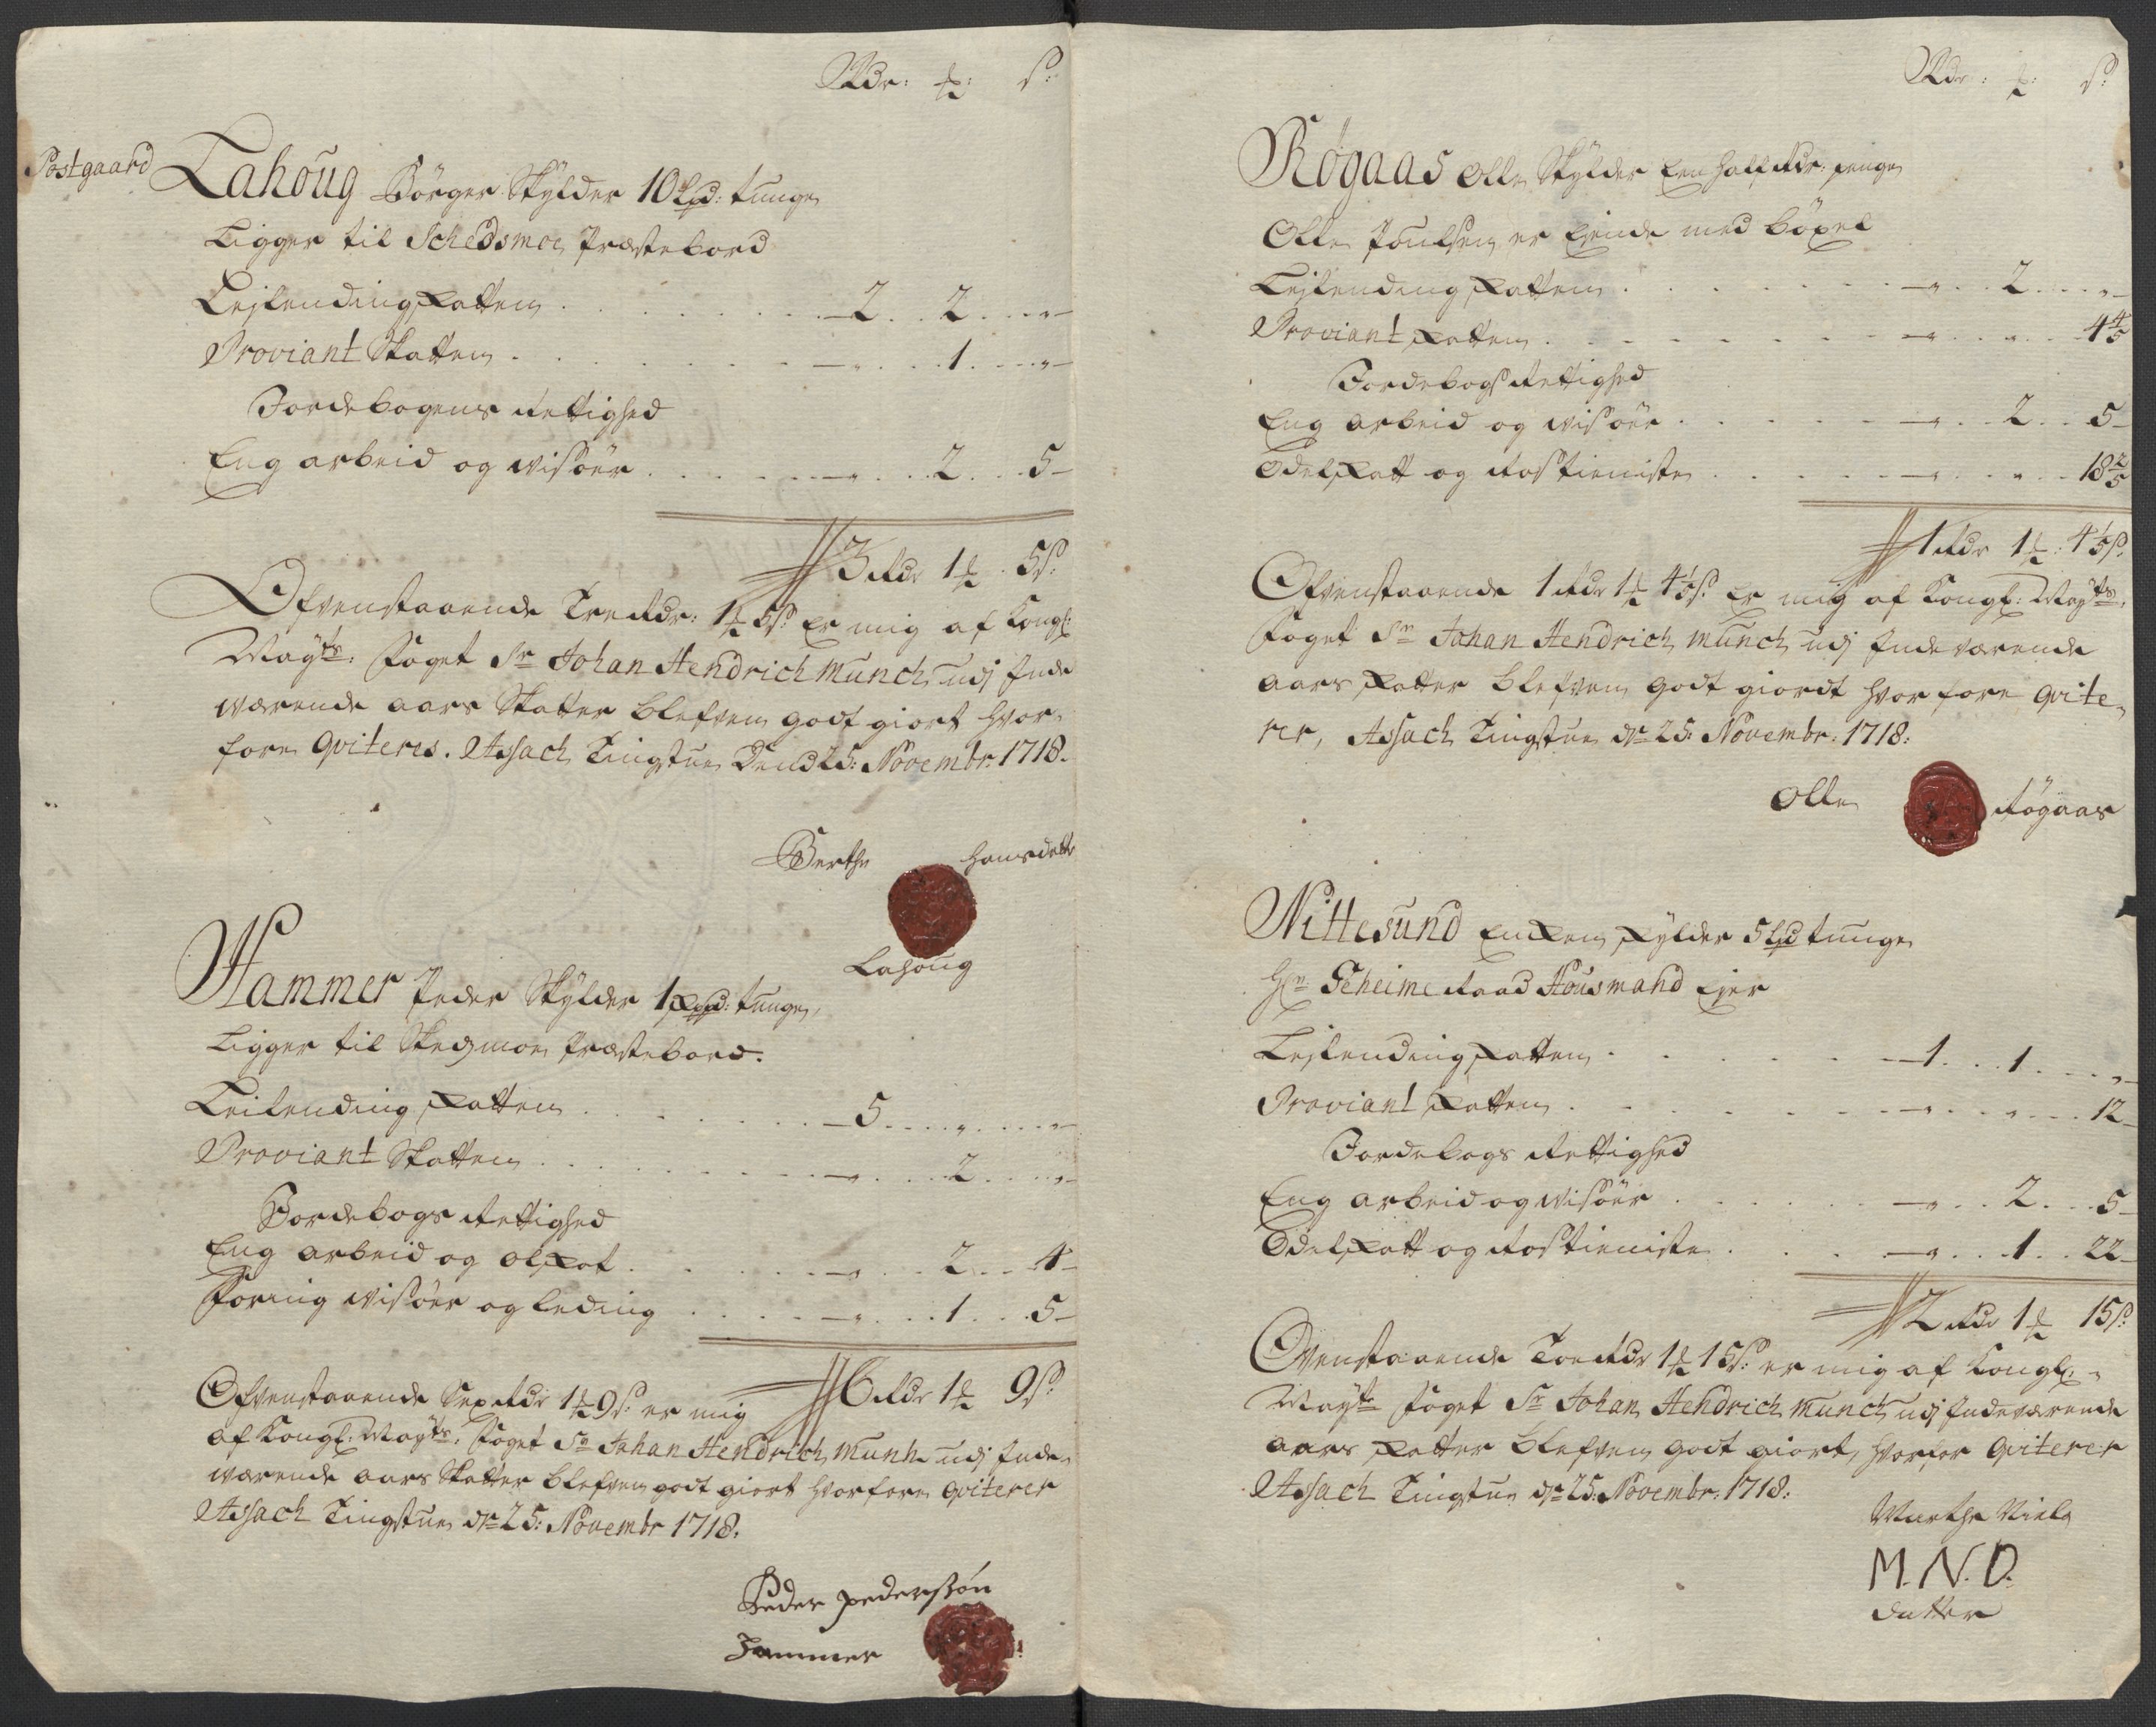 Rdr: ß:
Postgaard
Lahoug Börger Skylder 10 Lpd: tunge
Ligger til Schedsmoe Præstebord
Lejlending Skatten 2 2 "
Proviant Skatten " 1 "
Jordebogens Rettighed
Eng arbeid og wisöer " 2 5
3 Rdr 1 5 ß:
Ofvenstaaende Tre Rdr: 1 5 ß: er mig af Kongl:
Mayts: Foget Sr Johan Hendrich Munch udj Inde
werende aars Skatter blefven godt giort hvor-
fore Qviteres. Assach Tingstue Dend 25: Novembr: 1718.
Berthe Hansdatter
Lahoug
Hammer Peder Skylder 1 Skpd: tunge,
Ligger til Skedzmoe Præstebord.
Leilending Skatten 5 " "
Proviant Skatten " 2 "
Jordebogs Rettighed
Eng arbeid og olskat " 2 4
Foring wisöer og leding " 1 5
6 Rdr 1 9 ß:
Ofvenstaaende Sex Rdr 1 9 ß: er mig
af Kongl: Mayts: Foget Sr Johan Hendrich Munch udj Inde-
werende aars Skatter blefven godt giort hvorfore Qviterer
Assach Tingstue dn 25: Novembr 1718.
Peder pederssön
Hammer
Rdr: ß:
Røgaas Olle Skylder Een half Rdr: penge
Olle Poulsen er Ejende med böxel
Lejlending Skatten " 2 "
Proviant Skatten " " 4 4/5
Jordebogs Rettighed
Eng arbeid og wisöer " 2 5
Odelskatt og Rostieniste " " 18 2/5
1 Rdr 1 4 1/5 ß:
Ofvenstaaende 1 Rdr 1 4 1/5 ß: er mig af Kongl: Mayts:
Foget Sr Johan Hendrich Munch udj Indeværende
aars Skatter blefven godt giordt hvorfore Qvite-
rer, Assach Tingstue dn 25: Novembr: 1718:
Olle Røgaas
Nittesund Enken Skylder 5 Lpd tunge
Hr Geheime Raad Housmand Ejer
Lejlending Skatten 1 1 "
Proviant Skatten " " 12
Jordebogs Rettighed
Eng arbeid og wisöer " 2 5
Odelskatt og Rostieniste " 1 22
2 Rdr 1 15 ß:
Ovenstaaende Toe Rdr 1 15 ß: er mig af Kongl:
Mayts Foget Sr Johan Hendrich Munch udj Indeværende
aars Skatter blefven godt giort, hvorfor Qviterer
Assach Tingstue dn 25: Novembr: 1718:
Marthe Niels
M. N. D.
datter